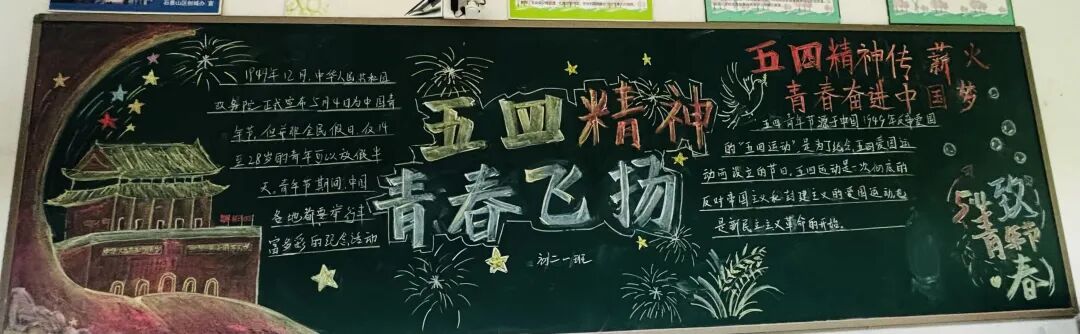 石景山区创城办 宣
1949年12月,中华人民共和国
政务院正式宣布5月4日为中国青
年节,但并非全民假日,仅14
至28岁的青年可以放假半
天,青年节期间,中国
各地都要举行丰
富多彩的纪念活动
五四精神
青春飞扬
初二一班
五四精神传薪火
青春奋进中国梦
五四青年节源于中国1949年反帝爱国
的“五四运动”是为了纪念五四爱国运
动而设立的节日,五四运动是一次彻底的
反对帝国主义和封建主义的爱国运动,也
是新民主主义革命的开始。
5.4青年节
致青春